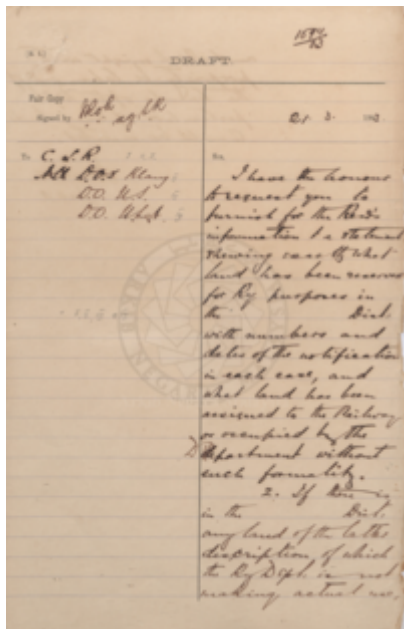 DRAFT.
Fair Copy
Signed by
21. 3. 189
To C. S. R
D.O.s Klang
D.O. U.S.
D.O. U.Lgt.
Sir,
I have the honour
to request you to
furnish for the Res's
information a statement
shewing exactly what
land has been reserved
for Ry purposes in
the Dist.
with numbers and
dates of the notification
in each case, and
what land has been
assigned to the Railway
or occupied by the
Department without
such formality.
2. If there is
in the Dist.
any land of the latter
description, of which
the Ry Dept. is not
making actual use,
ARKIB NEGARA